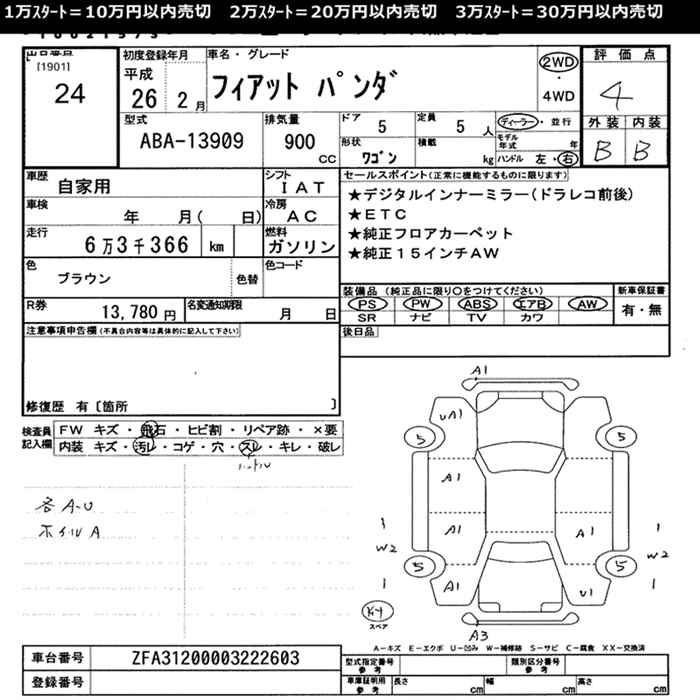 1万ｽﾀｰﾄ＝10万円以内売切　2万ｽﾀｰﾄ＝20万円以内売切　3万ｽﾀｰﾄ＝30万円以内売切
出品番号
[1901]
24
初度登録年月
平成
26 2月
車名・グレード
フィアット パンダ
2WD
・
4WD
評価点
4
外装 内装
B B
型式
ABA-13909
排気量
900 cc
ドア
5
定員
5 人
形状
ワゴン
積載
kg
ディーラー・並行
モデル年式 年
ハンドル 左・右
車歴
自家用
シフト
IAT
車検
年 月( 日)
冷房
AC
走行
6万3千366 km
燃料
ガソリン
色
ブラウン
色替
色コード
R券
13,780 円
名変通知期限
月 日
セールスポイント(正常に機能するものに限ります)
★デジタルインナーミラー(ドラレコ前後)
★ETC
★純正フロアカーペット
★純正15インチAW
装備品 (純正品に限り○をつけてください)
新車保証書
PS PW ABS エアB AW
有・無
SR ナビ TV カワ
後日品
注意事項申告欄(不具合内容等は具体的に記入して下さい)
修復歴 有〔箇所 〕
検査員
記入欄
FW キズ・飛石・ヒビ割・リペア跡・×要
内装 キズ・汚レ・コゲ・穴・スレ・キレ・破レ
ハンドル
各A-U
ホイルA
A1
uA1
5
5
A1
A1
A1
1
W2
1
1
W2
1
5
5
A1
U1
キy
スペア
A3
A－キズ E－エクボ U－凹み W－補修跡 S－サビ C－腐食 XX－交換済
車台番号
ZFA31200003222603
登録番号
型式指定番号
参考
類別区分番号
参考
車庫証明用
参考
長さ cm
幅 cm
高さ cm